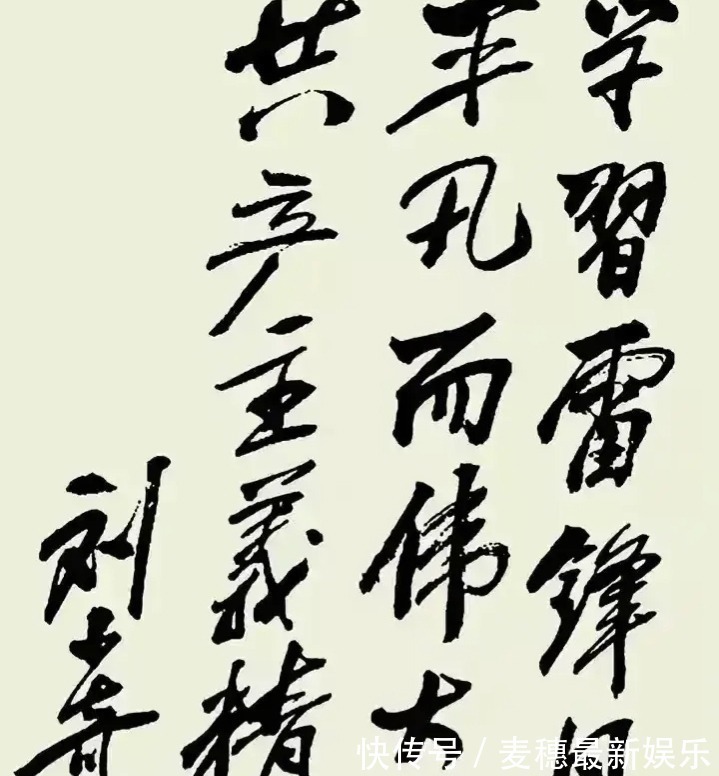 学習雷锋
平凡而伟大
共产主義精
刘少奇
快传号 / 麦穗最新娱乐